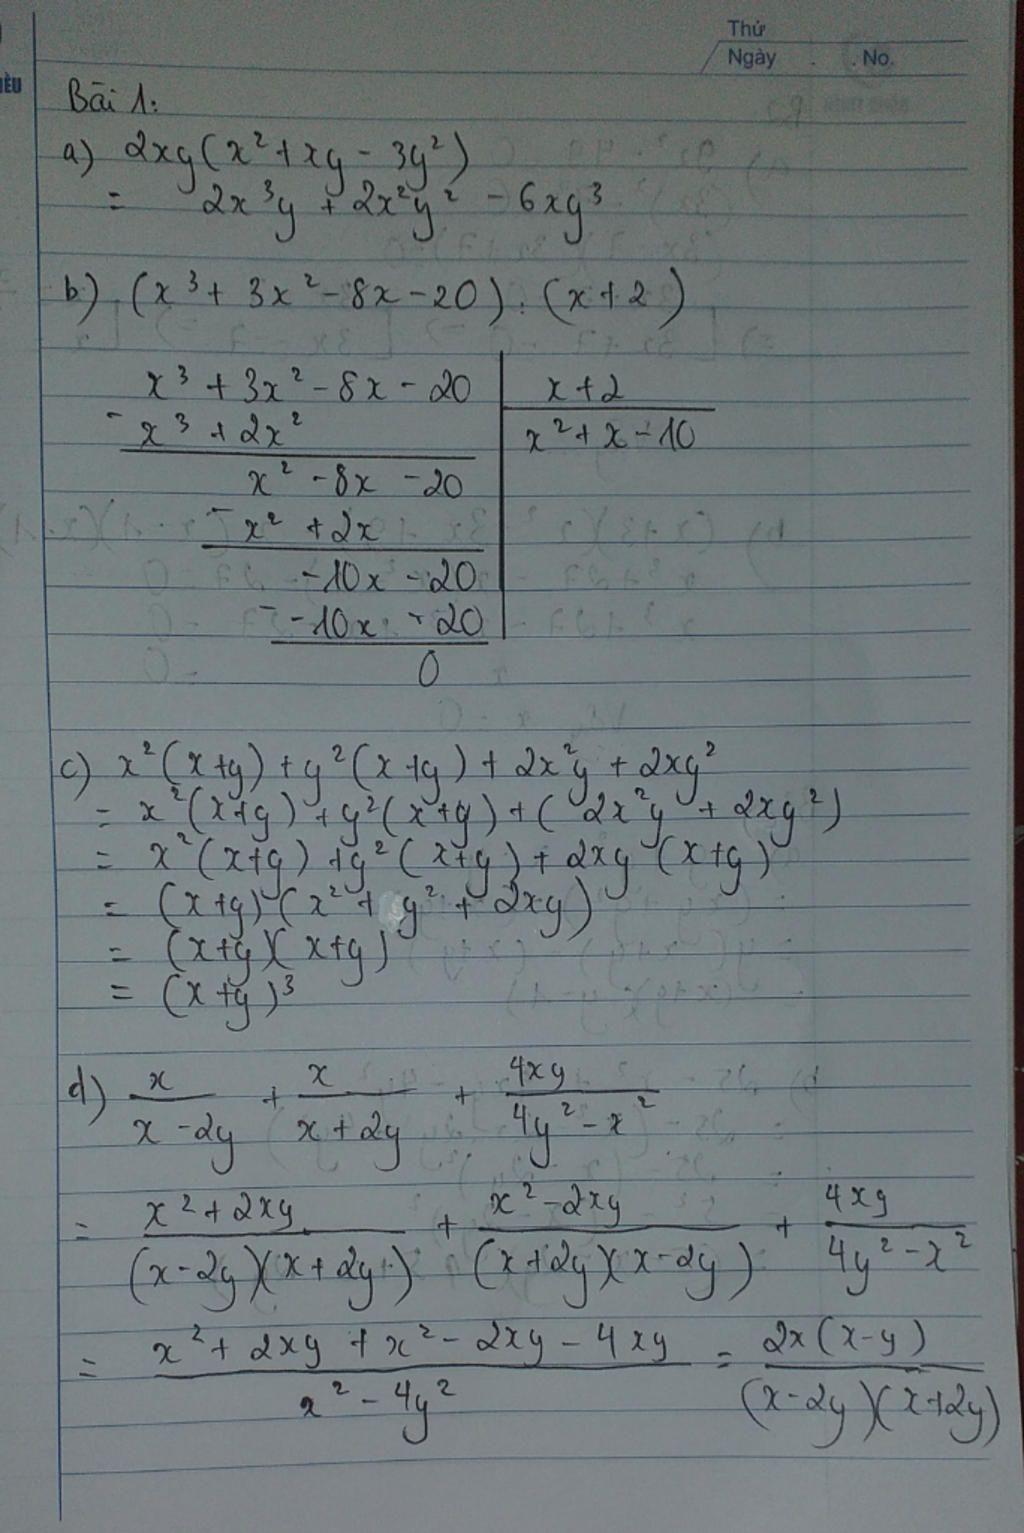 Thứ
Ngày . . No.
IỀU
Bài 1:
a) 2xy(x² + xy - 3y²)
= 2x³y + 2x²y² - 6xy³
b) (x³ + 3x² - 8x - 20) : (x + 2)
x³ + 3x² - 8x - 20 | x + 2
- x³ + 2x² | x² + x - 10
x² - 8x - 20
- x² + 2x
-10x - 20
- -10x - 20
0
c) x²(x+y) + y²(x+y) + 2x²y + 2xy²
= x²(x+y) + y²(x+y) + (2x²y + 2xy²)
= x²(x+y) + y²(x+y) + 2xy(x+y)
= (x+y)(x² + y² + 2xy)
= (x+y)(x+y)
= (x+y)³
d) x/(x - 2y) + x/(x + 2y) + 4xy/(4y² - x²)
= (x² + 2xy)/((x - 2y)(x + 2y)) + (x² - 2xy)/((x + 2y)(x - 2y)) + 4xy/(4y² - x²)
= (x² + 2xy + x² - 2xy - 4xy)/(x² - 4y²) = 2x(x - y)/((x - 2y)(x + 2y))